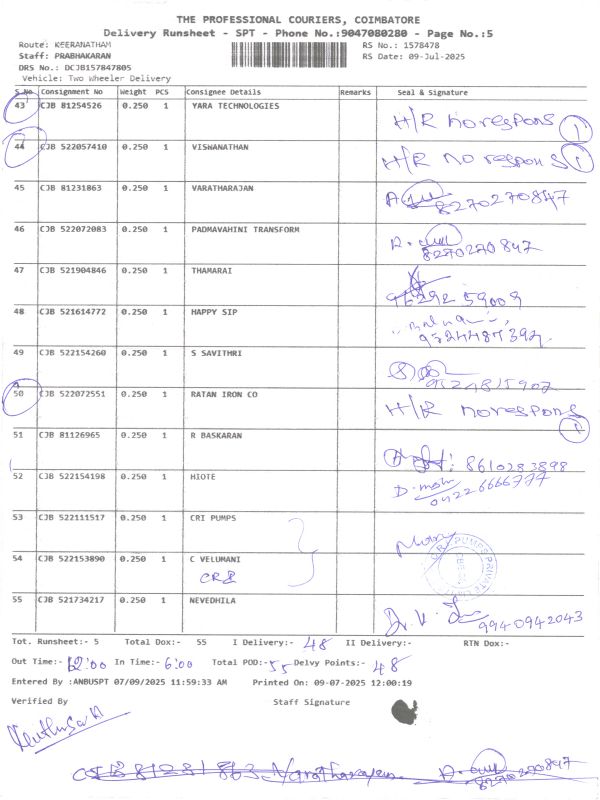 THE PROFESSIONAL COURIERS, COIMBATORE
Delivery Runsheet - SPT - Phone No.:9047080280 - Page No.:5
Route: KEERANATHAM RS No.: 1578478
Staff: PRABHAKARAN RS Date: 09-Jul-2025
DRS No.: DCJB157847805
Vehicle: Two Wheeler Delivery
S.No Consignment No Weight PCS Consignee Details Remarks Seal & Signature
43 CJB 81254526 0.250 1 YARA TECHNOLOGIES H/R no respons 1
44 CJB 522057410 0.250 1 VISHANATHAN H/R no respons 1
45 CJB 81231863 0.250 1 VARATHARAJAN 8270270847
46 CJB 522072083 0.250 1 PADMAVAHINI TRANSFORM 8270270847
47 CJB 521904846 0.250 1 THAMARAI 96292 59009
48 CJB 521614772 0.250 1 HAPPY SIP
49 CJB 522154260 0.250 1 S SAVITHRI 9524815907
50 CJB 522072551 0.250 1 RATAN IRON CO H/R no respons 1
51 CJB 81126965 0.250 1 R BASKARAN 8610283898
52 CJB 522154198 0.250 1 HIOTE D. 0422 6666777
53 CJB 522111517 0.250 1 CRI PUMPS
54 CJB 522153890 0.250 1 C VELUMANI
CRI
55 CJB 521734217 0.250 1 NEVEDHILA 9940942043
Tot. Runsheet:- 5 Total Dox:- 55 I Delivery:- 48 II Delivery:- RTN Dox:-
Out Time:- 12:00 In Time:- 6:00 Total POD:- 55 Delvy Points:- 48
Entered By :ANBUSPT 07/09/2025 11:59:33 AM Printed On: 09-07-2025 12:00:19
Verified By Staff Signature
CJB 81231863 Varatharajan 8270270847